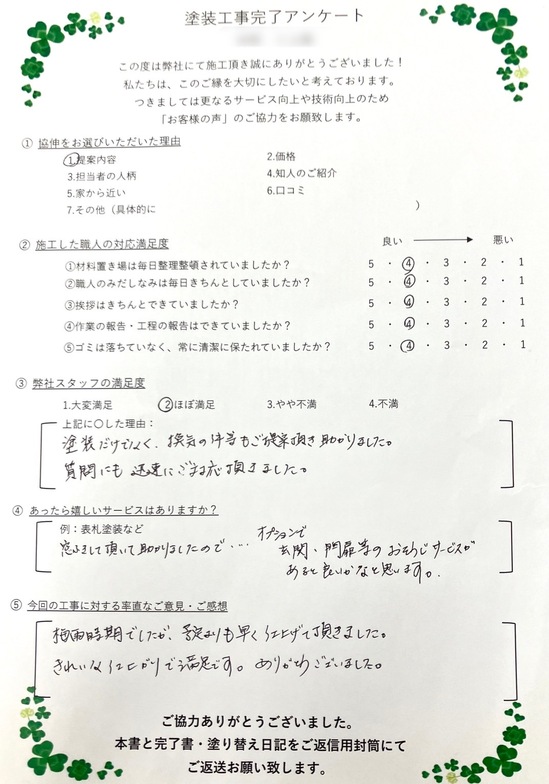 塗装工事完了アンケート
この度は弊社にて施工頂き誠にありがとうございました！
私たちは、このご縁を大切にしたいと考えております。
つきましては更なるサービス向上や技術向上のため
「お客様の声」のご協力をお願致します。
① 協伸をお選びいただいた理由
1.提案内容 2.価格
3.担当者の人柄 4.知人のご紹介
5.家から近い 6.口コミ
7.その他（具体的に ）
② 施工した職人の対応満足度 良い 悪い
①材料置き場は毎日整理整頓されていましたか？ 5 ・ 4 ・ 3 ・ 2 ・ 1
②職人のみだしなみは毎日きちんとしていましたか？ 5 ・ 4 ・ 3 ・ 2 ・ 1
③挨拶はきちんとできていましたか？ 5 ・ 4 ・ 3 ・ 2 ・ 1
④作業の報告・工程の報告はできていましたか？ 5 ・ 4 ・ 3 ・ 2 ・ 1
⑤ゴミは落ちていなく、常に清潔に保たれていましたか？ 5 ・ 4 ・ 3 ・ 2 ・ 1
③ 弊社スタッフの満足度
1.大変満足 2.ほぼ満足 3.やや不満 4.不満
上記に〇した理由：
塗装だけでなく、換気の件等もご提案頂き助かりました。
質問にも迅速にご対応頂きました。
④ あったら嬉しいサービスはありますか？
例：表札塗装など
して頂いて助かりましたので… オプションで
玄関、門扉等のおそうじサービスが
あると良いかなと思います。
⑤ 今回の工事に対する率直なご意見・ご感想
梅雨時期でしたが、予定よりも早く仕上げて頂きました。
きれいな仕上がりで満足です。ありがとうございました。
ご協力ありがとうございました。
本書と完了書・塗り替え日記をご返信用封筒にて
ご返送お願い致します。